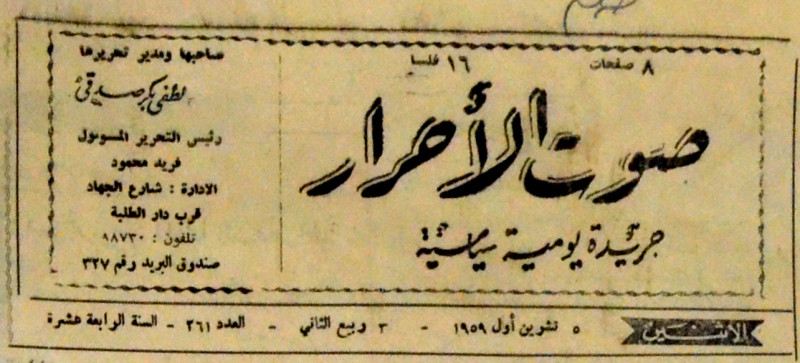 ٨ صفحات
١٦ فلسا
صوت الأحرار
جريدة يومية سياسية
صاحبها ومدير تحريرها
لطفي بكر صدقي
رئيس التحرير المسوءول
فريد محمود
الادارة : شارع الجهاد
قرب دار الطلبة
تلفون : ٨٨٧٣٠
صندوق البريد رقم ٣٢٧
الاثنين ٥ تشرين أول ١٩٥٩ - ٣ ربيع الثاني - العدد ٢٦١ - السنة الرابعة عشرة